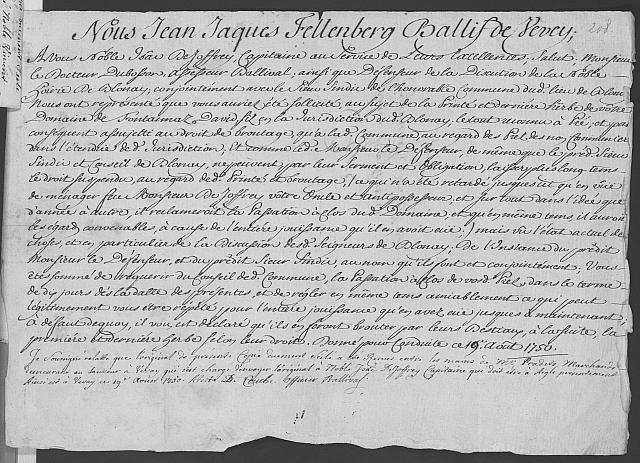 208
Nous Jean Jaques Fellenberg Ballif de Vevey;
A Vous Noble Isâc De Joffrey, Capitaine au Service de Leurs Excellences, Salut, Monsieur
le Docteur Dubosson, assesseur Ballival, ainsi que Deffenseur de la Direction de la Noble
Hoirie De Blonay, conjointement avec le Sieur Sindic de l'honorable Commune du d. lieu de Blonay
Nous ont représenté que vous auriez été sollicité au sujet de la prinse et dernière herbe de votre
Domaine de Fontanivaz, David, sit en la Jurisdiction du d. Blonay, le tout revenu à Piel, et par
conséquent assujetti au droit de broutage, qu'a la d. Commune au regard des Piel, des non Communier
dans l'étendue de d. Jurisdiction, Et comme led. Monsieur le Deffenseur, de même que le préd. Sieur
Sindic et Conseil de Blonay, ne peuvent par leur Serment et Obligation, laisser plus long tems
le droit suspendu, au regard de d. prinse et broutage, ce qui n'a été retardé jusques ici qu'en vüe
de ménager feu Monsieur De Joffrey votre Oncle et antiposesseur, et sur tout dans l'idée que
d'année à autre, il réclameroit la Passation à clos du d. Domaine, et qu'en même tems, il auroit
les égards convenables, à cause de l'entière jouissance qu'il en avoit eüe; mais vû l'état actuel des
choses, et en particulier de la Discussion des d. Seigneurs de Blonay, De l'Instance du prédit
Monsieur le Deffenseur, et du prédit Sieur Sindic, au nom qu'ils sont et conjointement; Vous
êtes sommé de requérir du Conseil de d. Commune, la Passation à clos de vos d. Piel, dans le terme
de dix jours dès la datte des présentes, et de régler en même tems amiablement ce qui peut
légitimement vous être répété pour l'entière jouissance qu'en avez eüe jusques à maintenant,
à défaut de quoy, il vous est déclaré qu'ils en feront brouter par leurs Bestiaux, à la suite, la
première et dernière herbe selon leur droit. Donné pour Conduite ce 19e Août 1750.
Je soussigné relatte que l'original du présent Copie duement scelé a été Remis entre les mains de Mr. Pradez, Marchand
demeurant au Sauveur à Vevay qui s'est chargé d'envoyer l'original à Noble Isâc DeJoffrey Capitaine qui doit être à Aigle présentement
Ainsi est à Vevay ce 19e Aoust 1750. D. Coulx. Officier Ballival